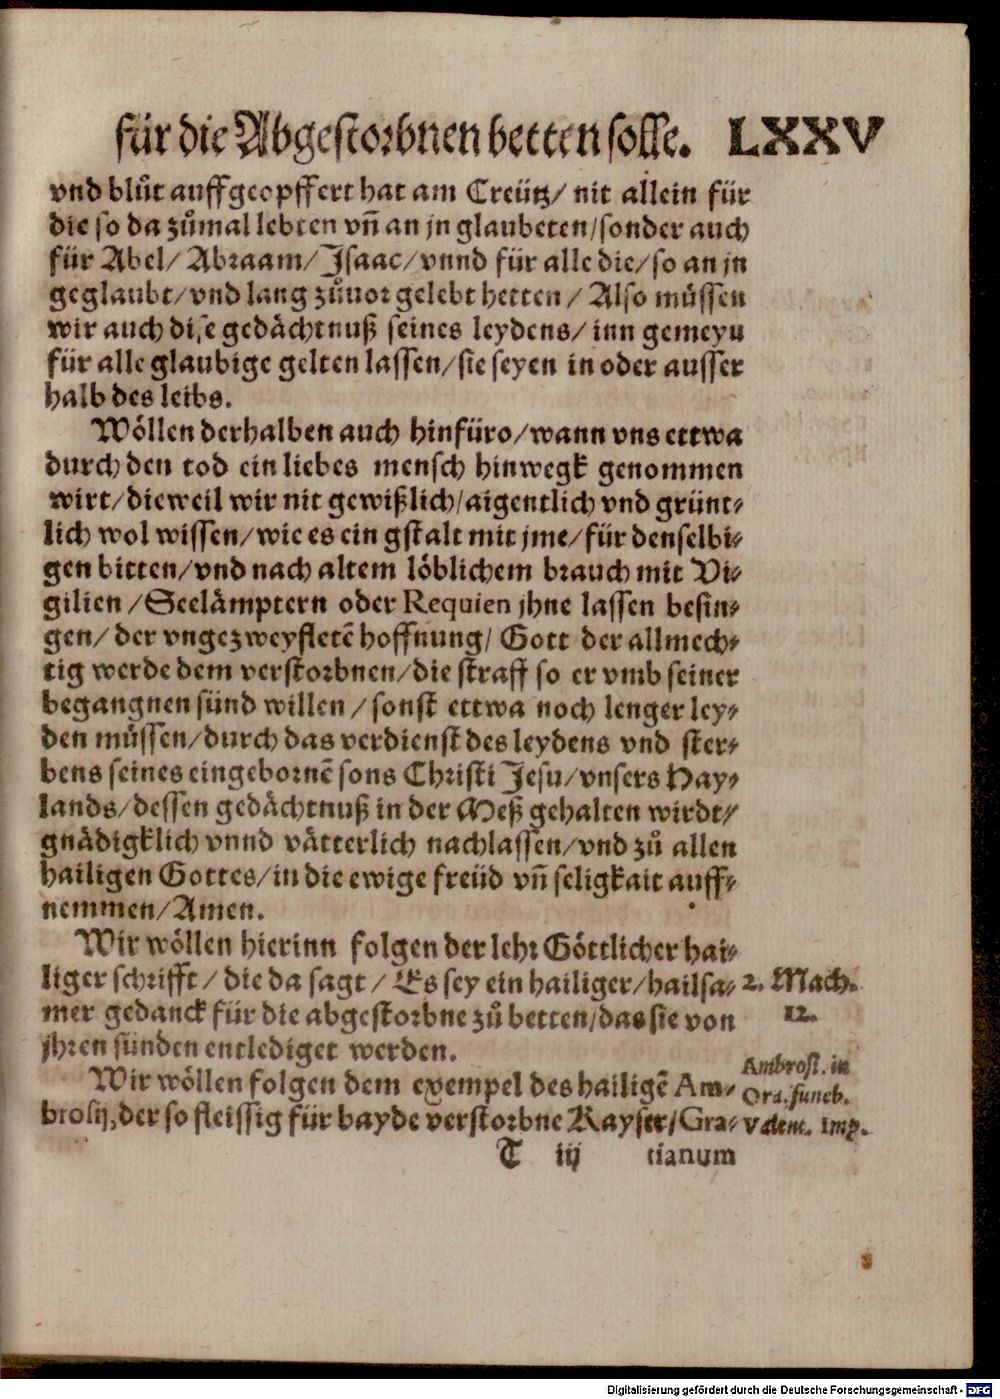 für die Abgestorbnen betten solle. LXXV
vnd blůt auffgeopffert hat am Creütz/ nit allein für
die so da zůmal lebten vñ an jn glaubeten/sonder auch
für Abel/ Abraam/ Isaac/ vnnd für alle die/ so an jn
geglaubt/ vnd lang zůuor gelebt hetten/ Also müssen
wir auch dise gedächtnuß seines leydens/ inn gemeyn
für alle glaubige gelten lassen/ sie seyen in oder ausser
halb des leibs.
Wöllen derhalben auch hinfüro/ wann vns ettwa
durch den tod ein liebes mensch hinwegk genommen
wirt/ dieweil wir nit gewißlich/ aigentlich vnd grünt⸗
lich wol wissen/ wie es ein gstalt mit jme/ für denselbi⸗
gen bitten/ vnd nach altem löblichem brauch mit Vi⸗
gilien/ Seelämptern oder Requien jhne lassen besin⸗
gen/ der vngezweyfletẽ hoffnung/ Gott der allmech⸗
tig werde dem verstorbnen/ die straff so er vmb seiner
begangnen sünd willen/ sonst ettwa noch lenger ley⸗
den müssen/ durch das verdienst des leydens vnd ster⸗
bens seines eingebornẽ sons Christi Jesu/ vnsers Hay⸗
lands/ dessen gedächtnuß in der Meß gehalten wirdt/
gnädigklich vnnd vätterlich nachlassen/ vnd zů allen
hailigen Gottes/ in die ewige freüd vñ seligkait auff⸗
nemmen/ Amen.
Wir wöllen hierinn folgen der lehr Göttlicher hai⸗
liger schrifft/ die da sagt/ Es sey ein hailiger/ hailsa⸗ 2. Mach.
mer gedanck für die abgestorbne zů betten/ das sie von 12.
jhren sünden entlediget werden.
Wir wöllen folgen dem exempel des hailigẽ Am⸗ Ambros. in
Ora. funeb.
brosij, der so fleissig für bayde verstorbne Kayser/ Gra⸗ Valent. Imp.
T iij tianum
Digitalisierung gefördert durch die Deutsche Forschungsgemeinschaft - DFG